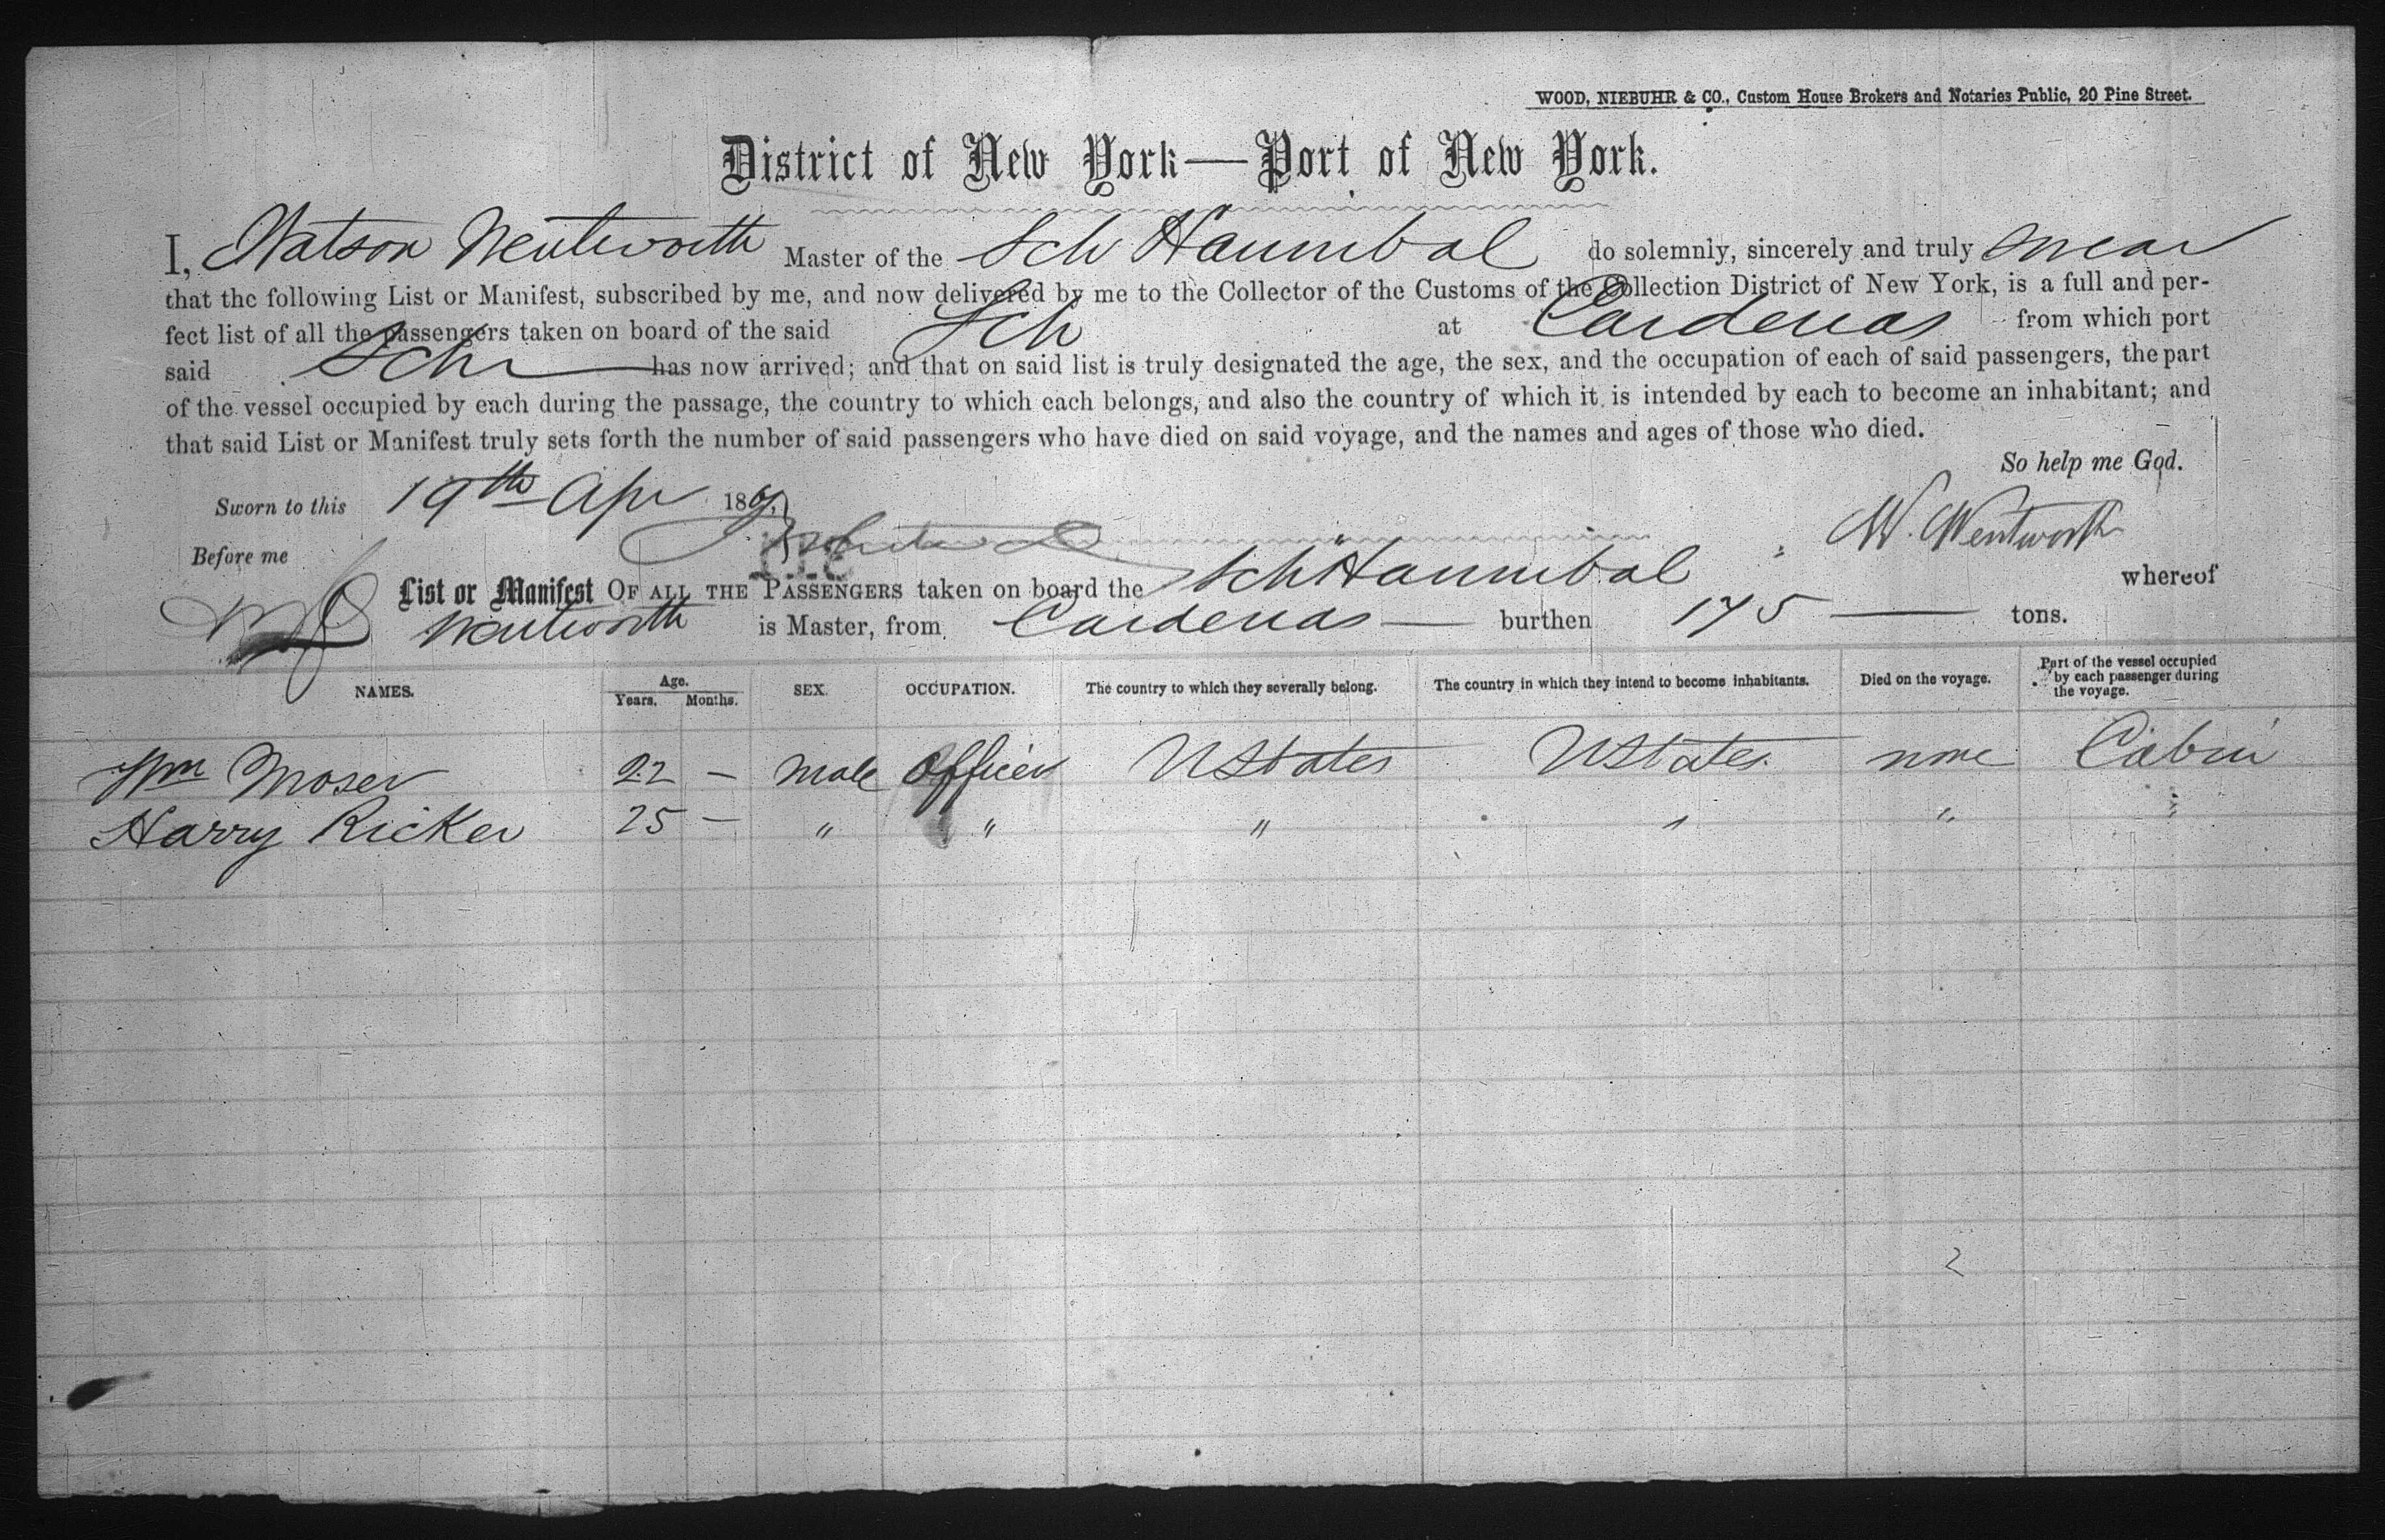 WOOD, NIEBUHR & CO., Custom House Brokers and Notaries Public, 20 Pine Street.
District of New York—Port of New York.
I, Watson Wentworth Master of the Sch Hannibal do solemnly, sincerely and truly swear
that the following List or Manifest, subscribed by me, and now delivered by me to the Collector of the Customs of the Collection District of New York, is a full and per-
fect list of all the passengers taken on board of the said Sch at Cardenas from which port
said Schr has now arrived; and that on said list is truly designated the age, the sex, and the occupation of each of said passengers, the part
of the vessel occupied by each during the passage, the country to which each belongs, and also the country of which it is intended by each to become an inhabitant; and
that said List or Manifest truly sets forth the number of said passengers who have died on said voyage, and the names and ages of those who died.
So help me God.
Sworn to this 19th Apr 186
W. Wentworth
Before me
List or Manifest OF ALL THE PASSENGERS taken on board the Sch Hannibal whereof
Wentworth is Master, from Cardenas — burthen 175 — tons.
NAMES. Age. Years. Months. SEX. OCCUPATION. The country to which they severally belong. The country in which they intend to become inhabitants. Died on the voyage. Part of the vessel occupied by each passenger during the voyage.
Wm Moser 22 — Male Officer UStates UStates none Cabin
Harry Ricker 25 — " " " " " "
2